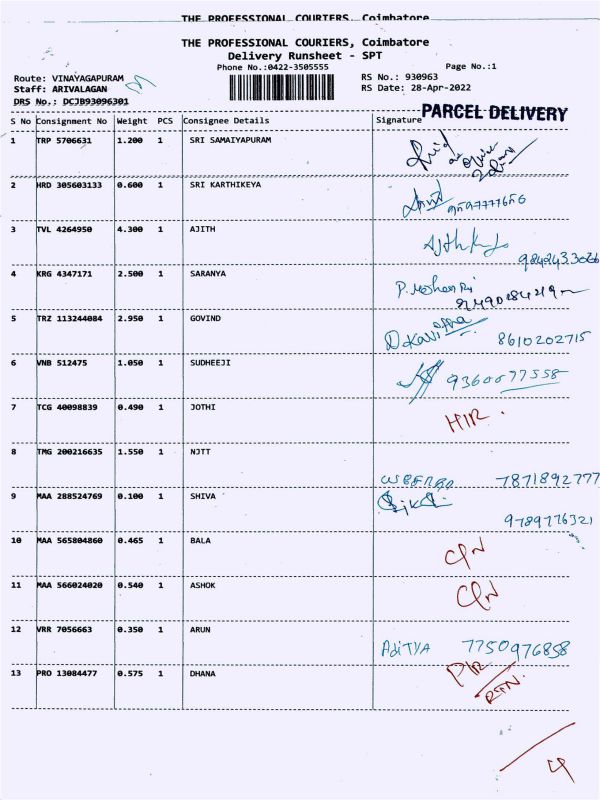 THE PROFESSIONAL COURIERS, Coimbatore
THE PROFESSIONAL COURIERS, Coimbatore
Delivery Runsheet - SPT
Phone No.:0422-3505555
Page No.:1
Route: VINAYAGAPURAM
RS No.: 930963
Staff: ARIVALAGAN
RS Date: 28-Apr-2022
DRS No.: DCJB93096301
PARCEL DELIVERY
S No Consignment No Weight PCS Consignee Details Signature
1 TRP 5706631 1.200 1 SRI SAMAIYAPURAM
2 HRD 305603133 0.600 1 SRI KARTHIKEYA
3 TVL 4264950 4.300 1 AJITH
9842433026
4 KRG 4347171 2.500 1 SARANYA
5 TRZ 113244084 2.950 1 GOVIND
8610202715
6 VNB 512475 1.050 1 SUDHEEJI 9360677558
7 TCG 40098839 0.490 1 JOTHI
8 TMG 200216635 1.550 1 NJTT
7871892777
9 MAA 288524769 0.100 1 SHIVA
9789776321
10 MAA 565804860 0.465 1 BALA
11 MAA 566024020 0.540 1 ASHOK
12 VRR 7056663 0.350 1 ARUN
AdiTYA 7750976858
13 PRO 13084477 0.575 1 DHANA